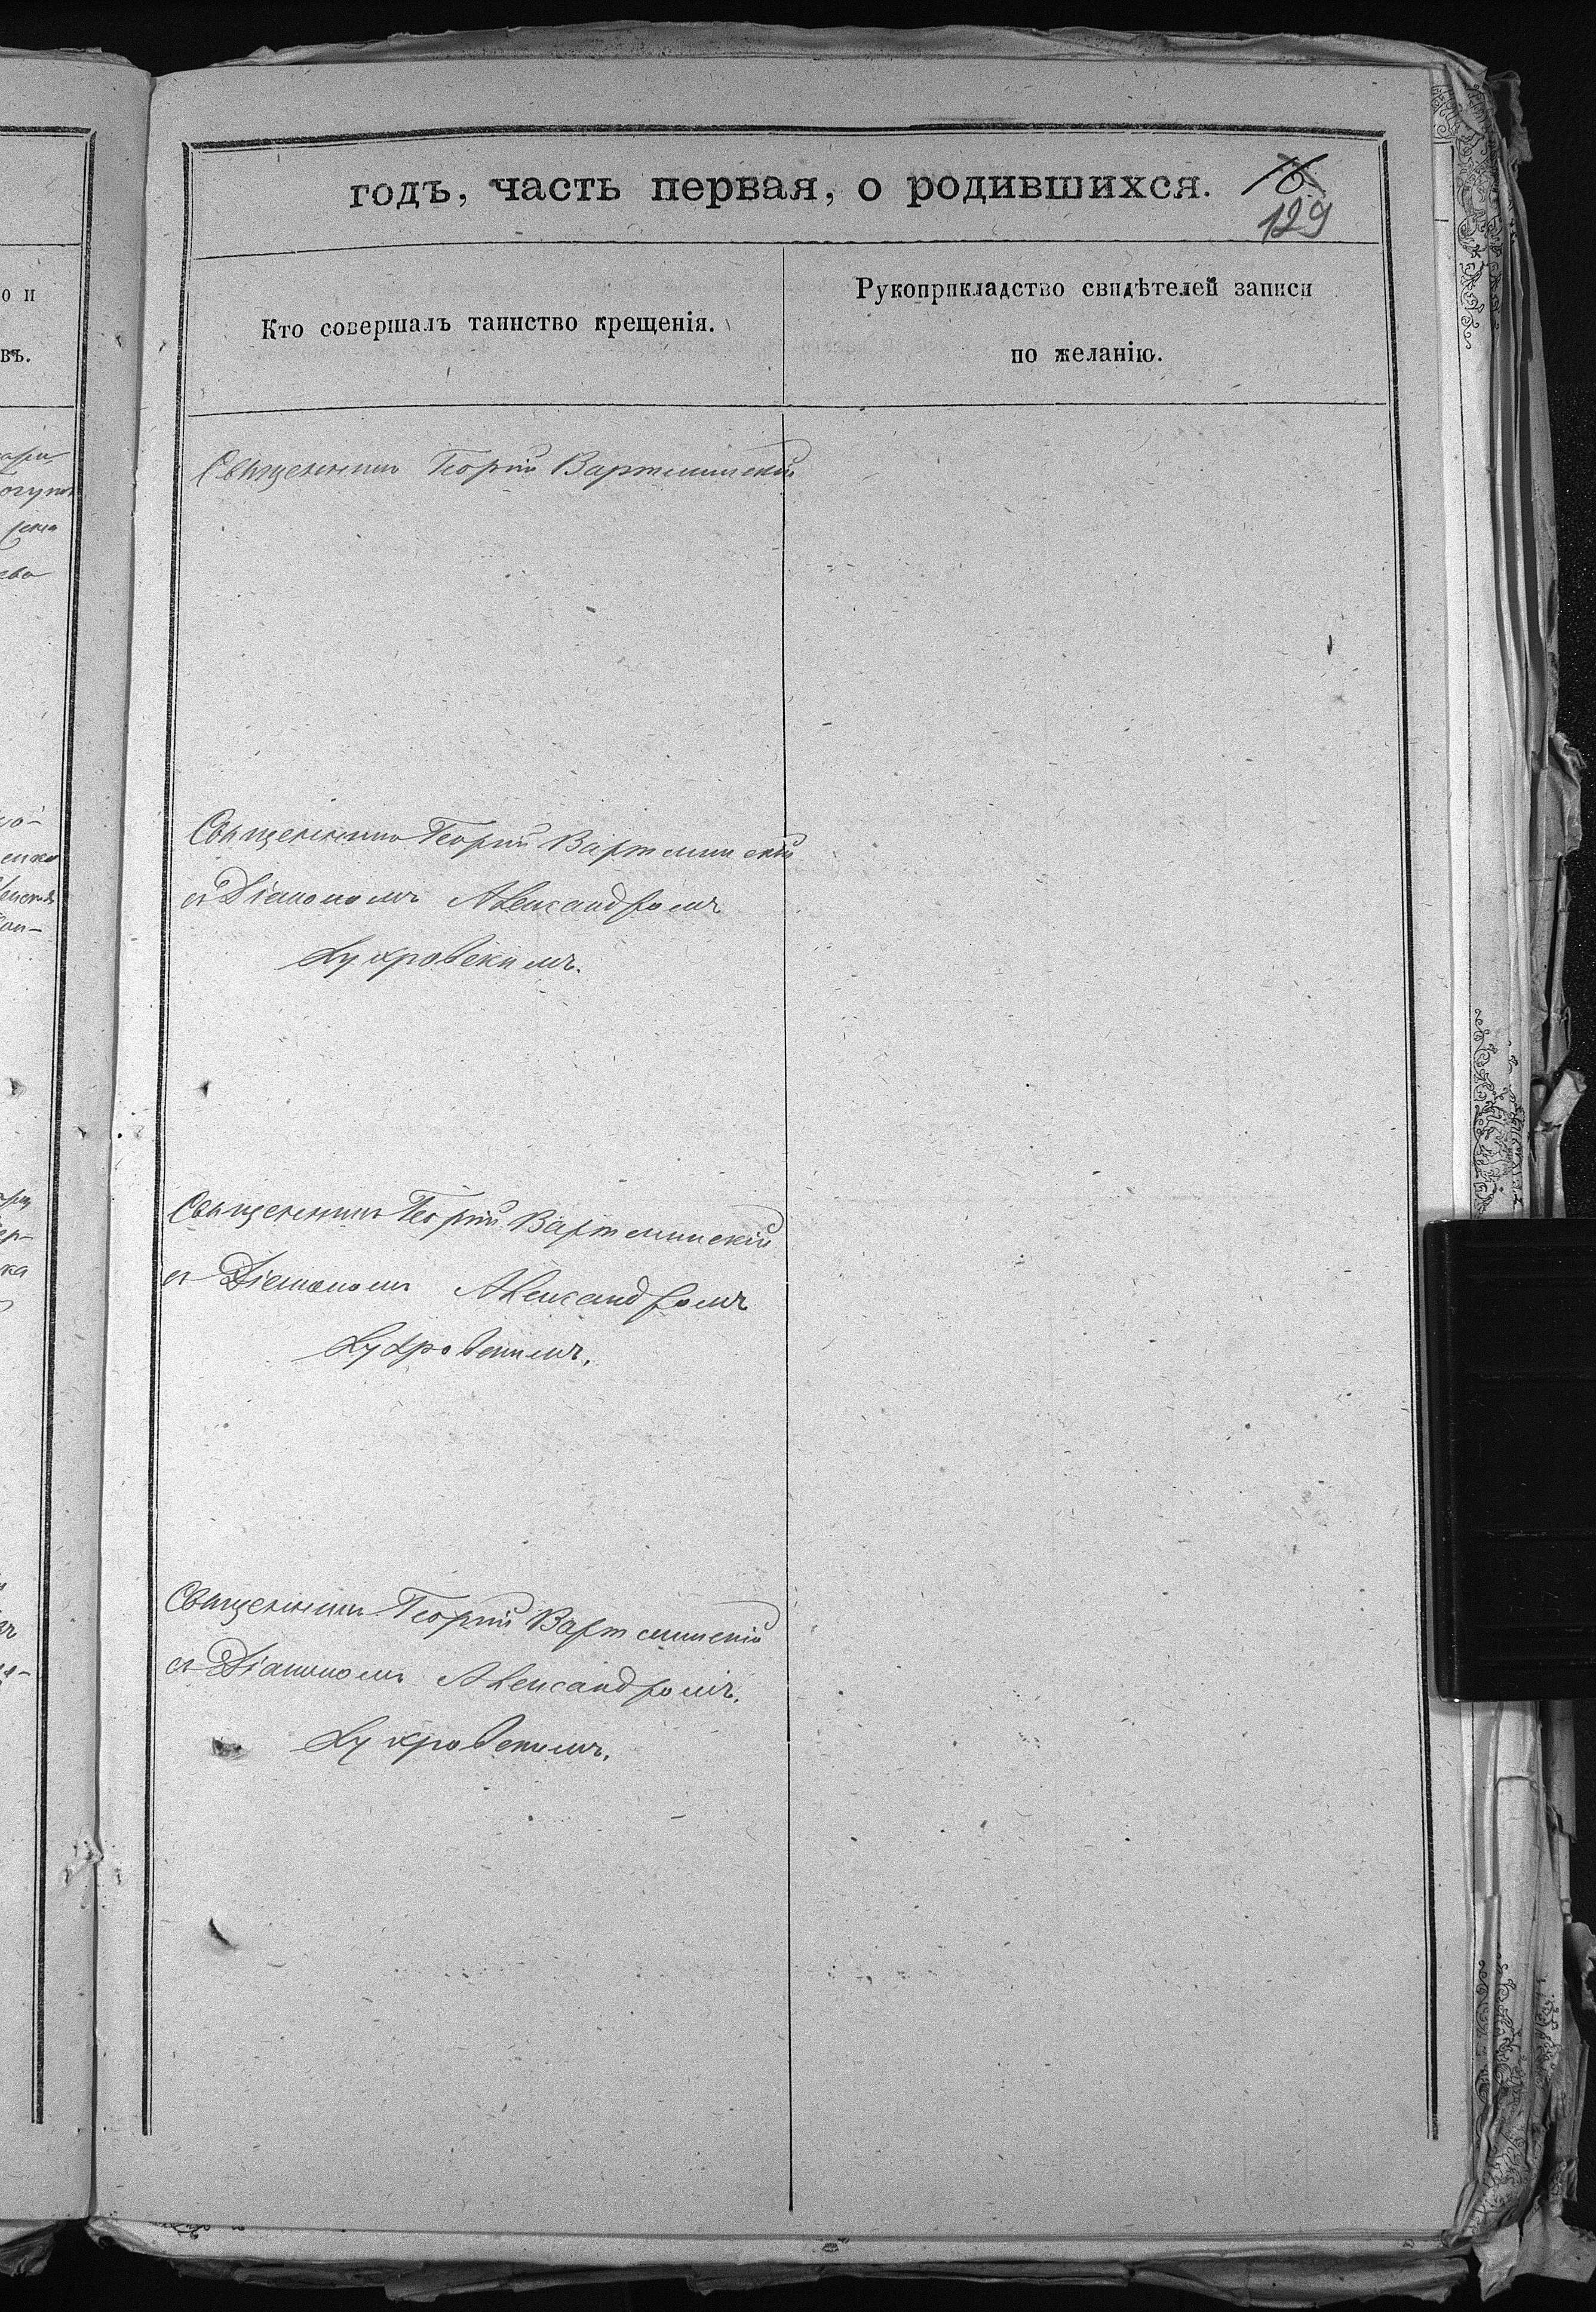 годъ, часть первая, о родившихся.
129
Кто совершалъ таинство крещенія.
Рукоприкладство свидѣтелей записи
по желанію.
Священникъ Георгій Вартминскій
Священникъ Георгій Вартминскій
съ Діакономъ Александромъ
Сукровскимъ.
Священникъ Георгій Вартминскій
съ Діакономъ Александромъ
Сукровскимъ.
Священникъ Георгій Вартминскій
съ Діакономъ Александромъ.
Сукровскимъ.